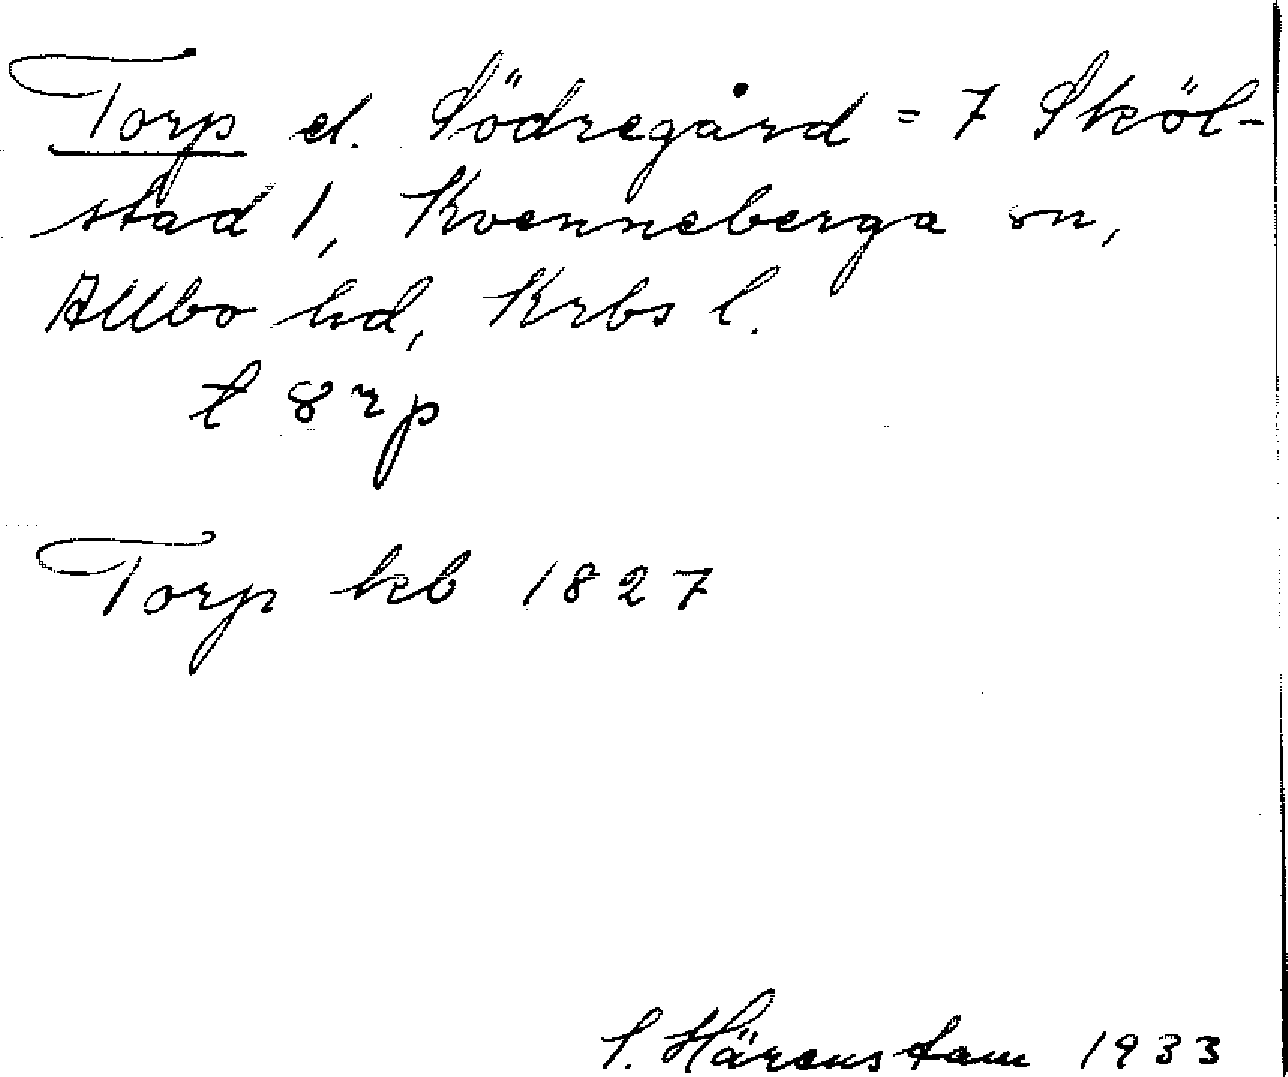 Torp el. Södregård = 7 Sköl-
stad 1, Kvenneberga sn,
Allbo hd, Krbs l.
t 8 r p
Torp kb 1827
S. Härenstam 1933